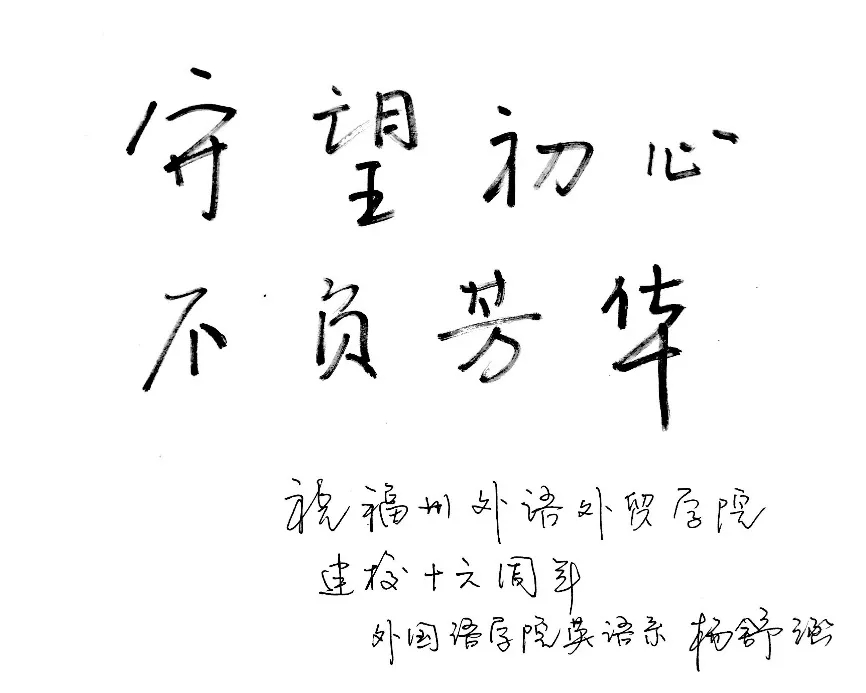 守望初心
不负芳华
祝福州外语外贸学院
建校十六周年
外国语学院英语系 杨舒